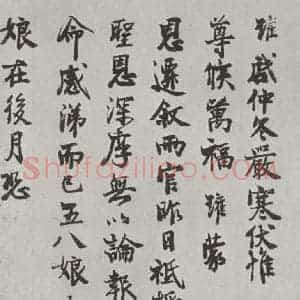 啟仲冬嚴寒伏惟
尊候萬福 蒙
恩遷叙兩官昨日祗
聖恩深厚無以論報
命感涕而已五八娘
娘在後月恐